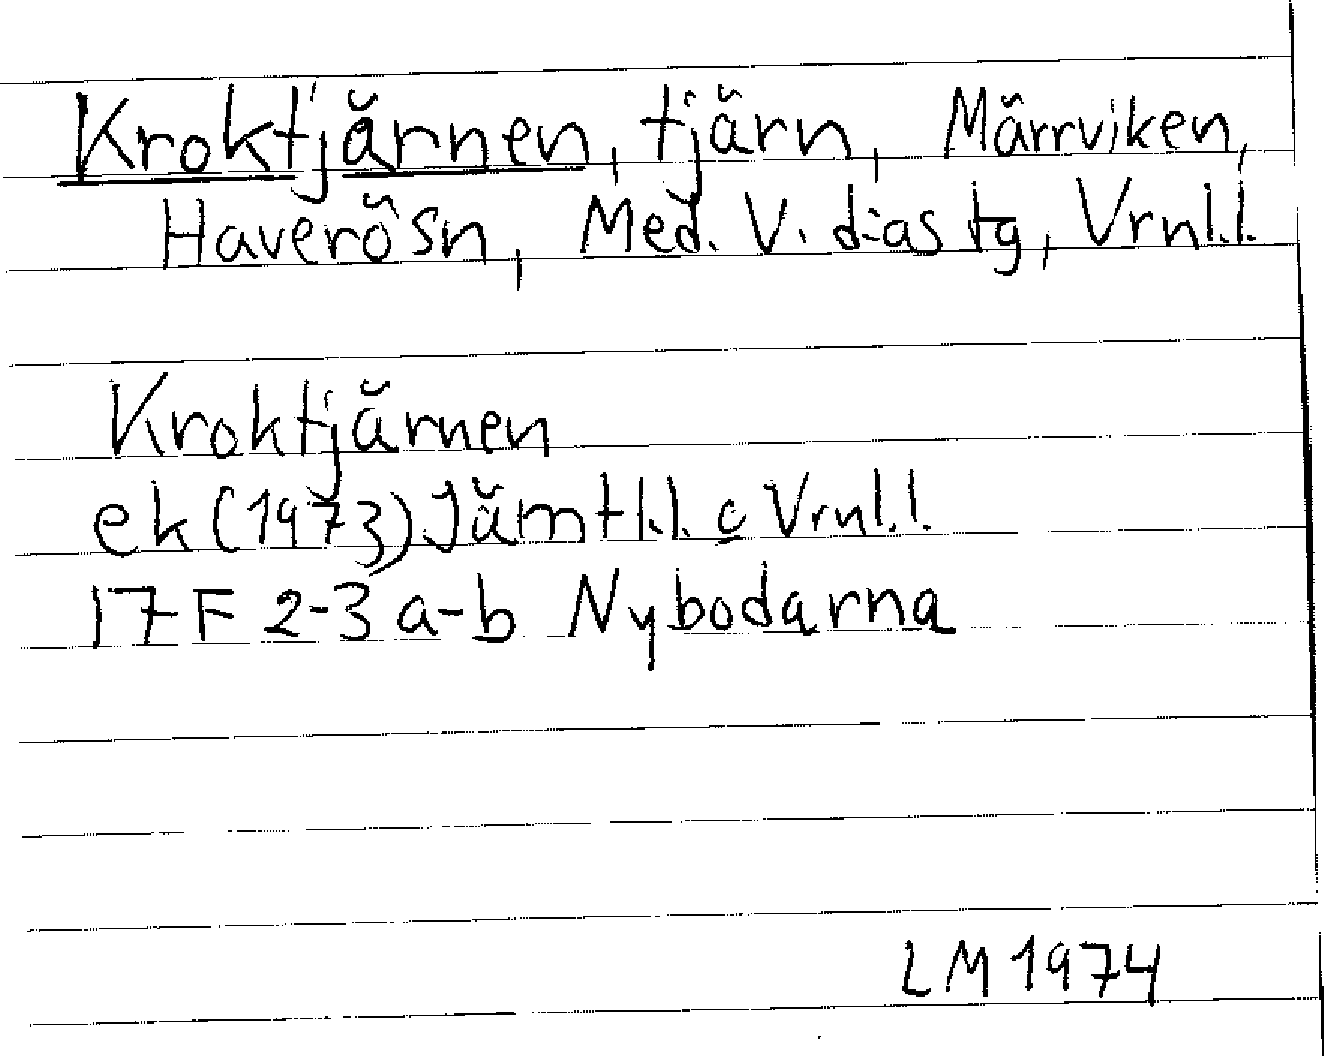 Kroktjärnen, tjärn, Märrviken,
Haverö sn, Med. V. d:as tg, Vrnl.l.
Kroktjärnen
ek (1973) Jämtl.l. o Vrnl.l.
17 F 2-3 a-b Nybodarna
LM 1974